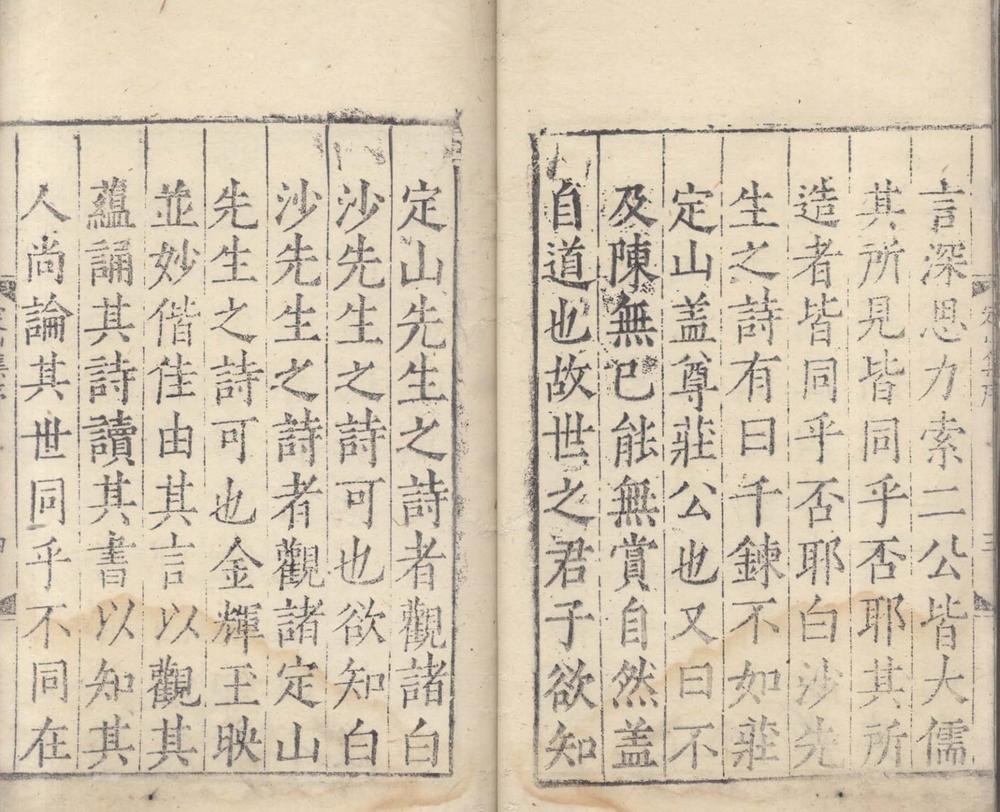 言深思力索二公皆大儒
其所見皆同乎否耶其所
造者皆同乎否耶白沙先
生之詩有曰千鍊不如莊
定山盖尊莊公也又曰不
及陳無已能無賞自然盖
自道也故世之君子欲知
定山先生之詩者觀諸白
沙先生之詩可也欲知白
沙先生之詩者觀諸定山
先生之詩可也金輝玉映
並妙偕佳由其言以觀其
蘊誦其詩讀其書以知其
人尚論其世同乎不同在